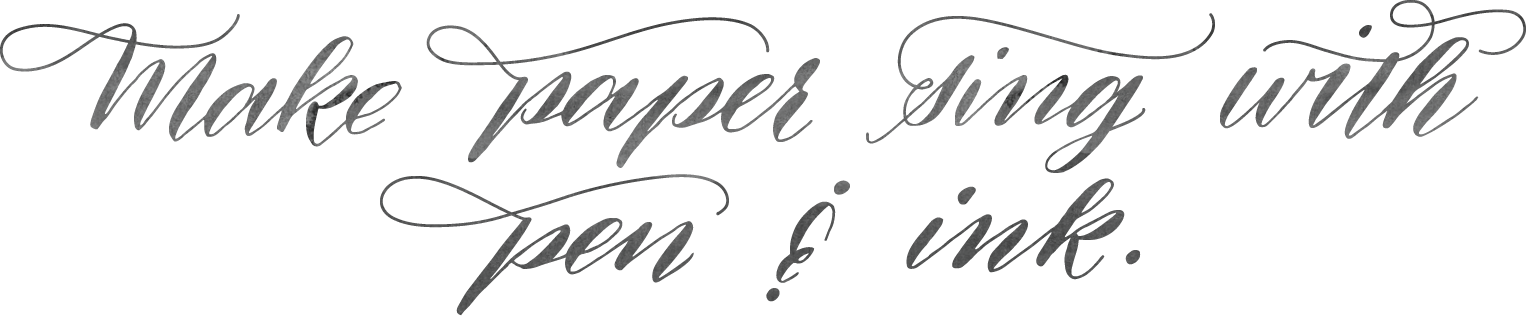 Make paper sing with
pen & ink.